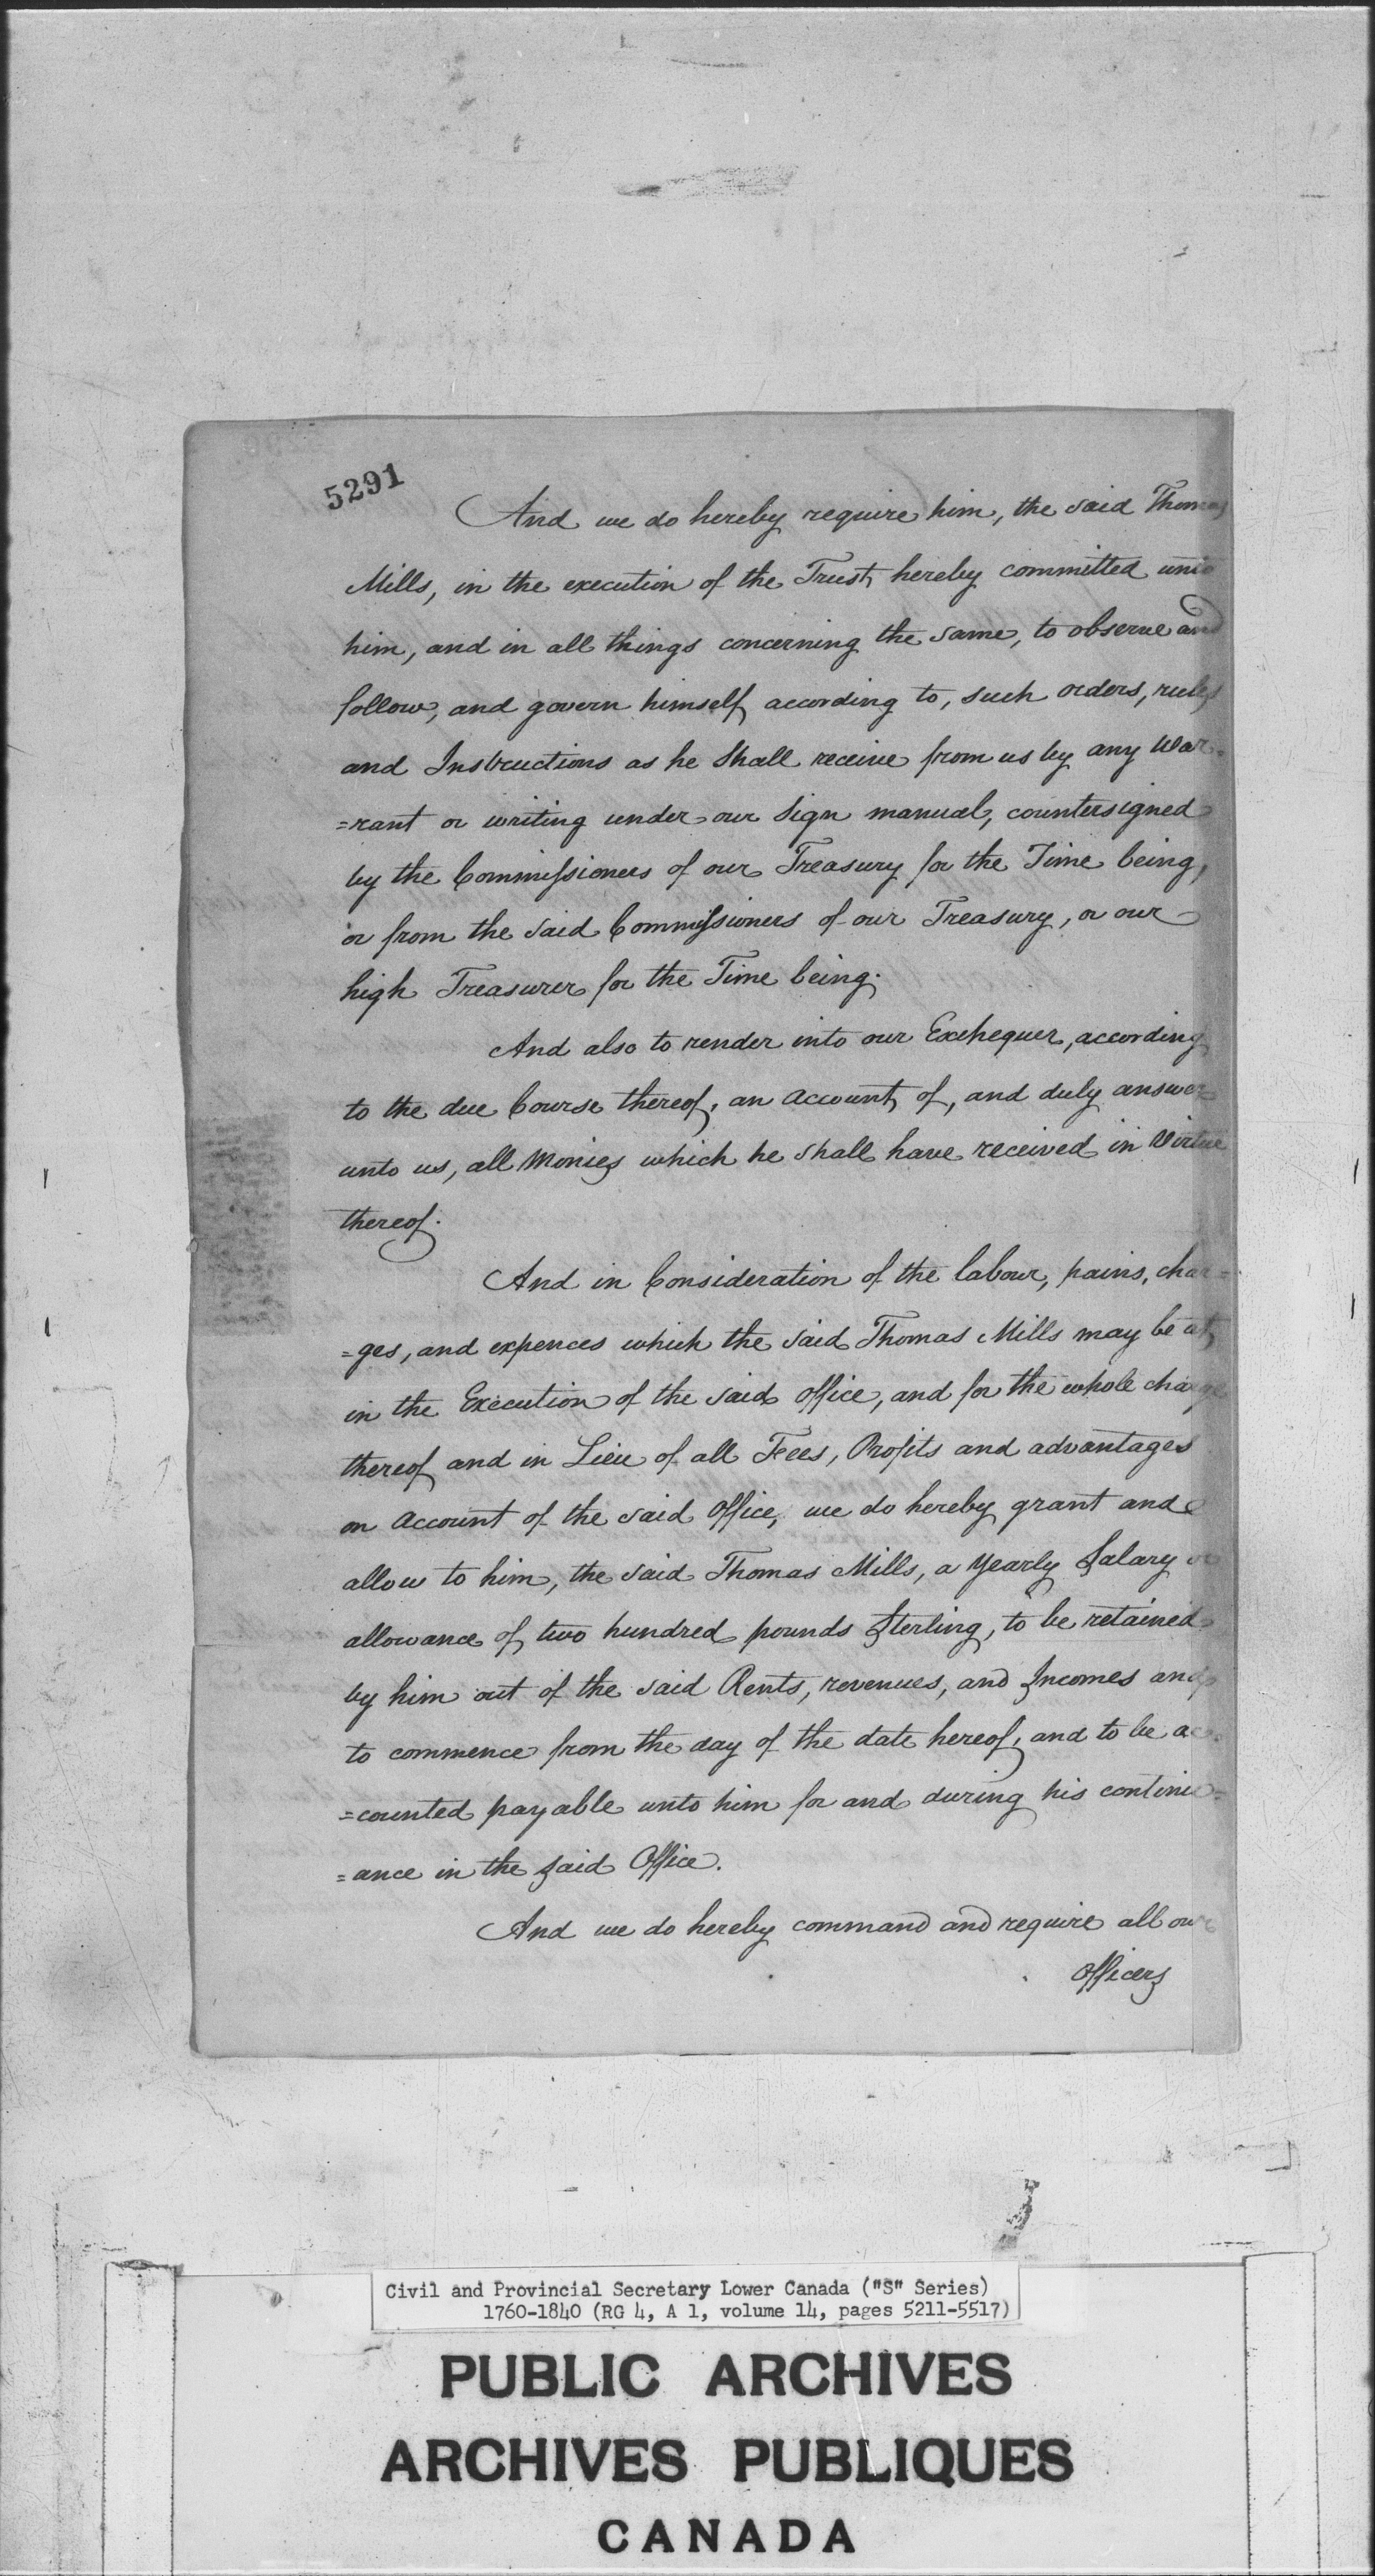 5291
And we do hereby require him, the said Thomas
Mills, in the execution of the Trust hereby committed unto
him, and in all things concerning the same, to observe and
follow, and govern himself according to, such orders, rules
and Instructions as he Shall receive from us by any War=
=rant or writing under our Sign manual, countersigned
by the Commissioners of our Treasury for the Time being,
or from the said Commissioners of our Treasury, or our
high Treasurer for the Time being.
And also to render into our Exchequer, according
to the due Course thereof, an Account of, and duly answer
unto us, all Monies which he shall have received in Virtue
thereof.
And in Consideration of the labour, pains, char=
=ges, and expences which the said Thomas Mills may be at,
in the Execution of the said office, and for the whole charge
thereof and in Lieu of all Fees, Profits and advantages
on Account of the said Office, we do hereby grant and
allow to him, the said Thomas Mills, a Yearly Salary or
allowance of two hundred pounds Sterling, to be retained
by him out of the said Rents, revenues, and Incomes and
to commence from the day of the date hereof, and to be ac=
=counted payable unto him for and during his continu=
=ance in the said Office.
And we do hereby command and require all our
Officers
Civil and Provincial Secretary Lower Canada ("S" Series)
1760-1840 (RG 4, A 1, volume 14, pages 5211-5517)
PUBLIC ARCHIVES
ARCHIVES PUBLIQUES
CANADA